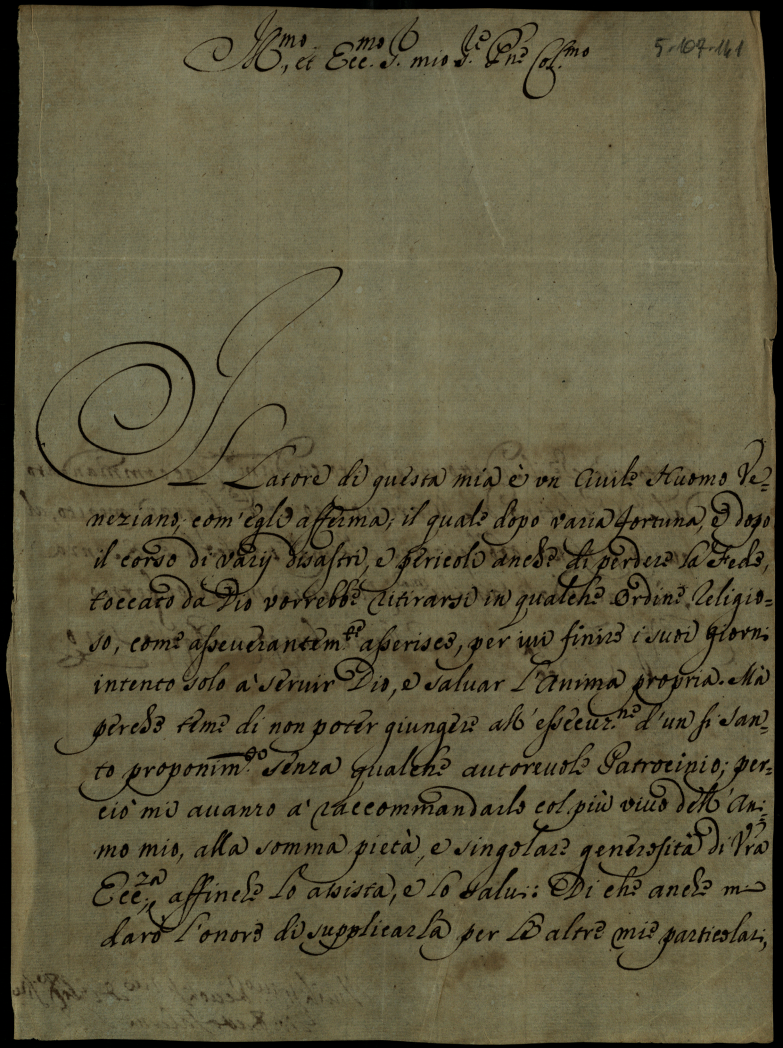 Ill.mo, et Ecc.mo S. mio S.re P.ne Col.mo
5-107-141
Il Latore di questa mia è un Civile Huomo Ve=
neziano, com'egli afferma; il quale dopo varia fortuna, e dopo
il corso di varij disastri, e pericoli anche di perdere la Fede,
toccato da Dio vorrebbe ritirarsi in qualche Ordine Religio=
so, come asseverantem.te asserisce, per ivi finire i suoi giorni
intento solo a' servir Dio, e salvar l'Anima propria. Mà
perche teme di non poter giungere all'essecuz.ne d'un si san=
to proponim.to senza qualche autorevole Patrocinio; per=
ciò mi avanzo a' raccommandarlo col più vivo dell'Ani=
mo mio, alla somma pietà, e singolare generosità di Vra
Ecc.za affinche lo assista, e lo salvi: Di che anche mi
darò l'onore di supplicarla per le altre mie particolari,